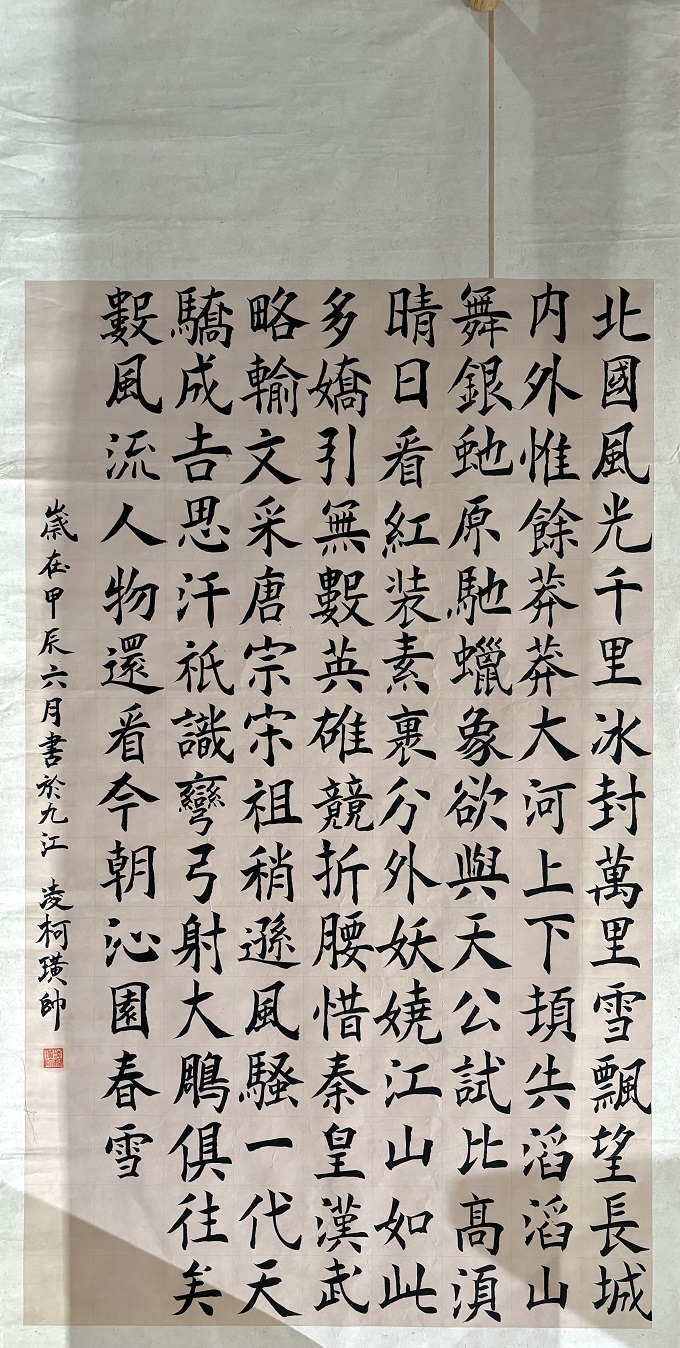 北國風光千里冰封萬里雪飄望長城
内外惟餘莽莽大河上下頓失滔滔山
舞銀虵原馳蠟象欲與天公試比髙湏
晴日看紅装素裹分外妖嬈江山如此
多嬌引無數英雄競折腰惜秦皇漢武
略輸文采唐宗宋祖稍遜風騷一代天
驕成吉思汗祇識彎弓射大鵰俱往矣
數風流人物還看今朝沁園春雪
歲在甲辰六月書於九江 凌柯璜帥